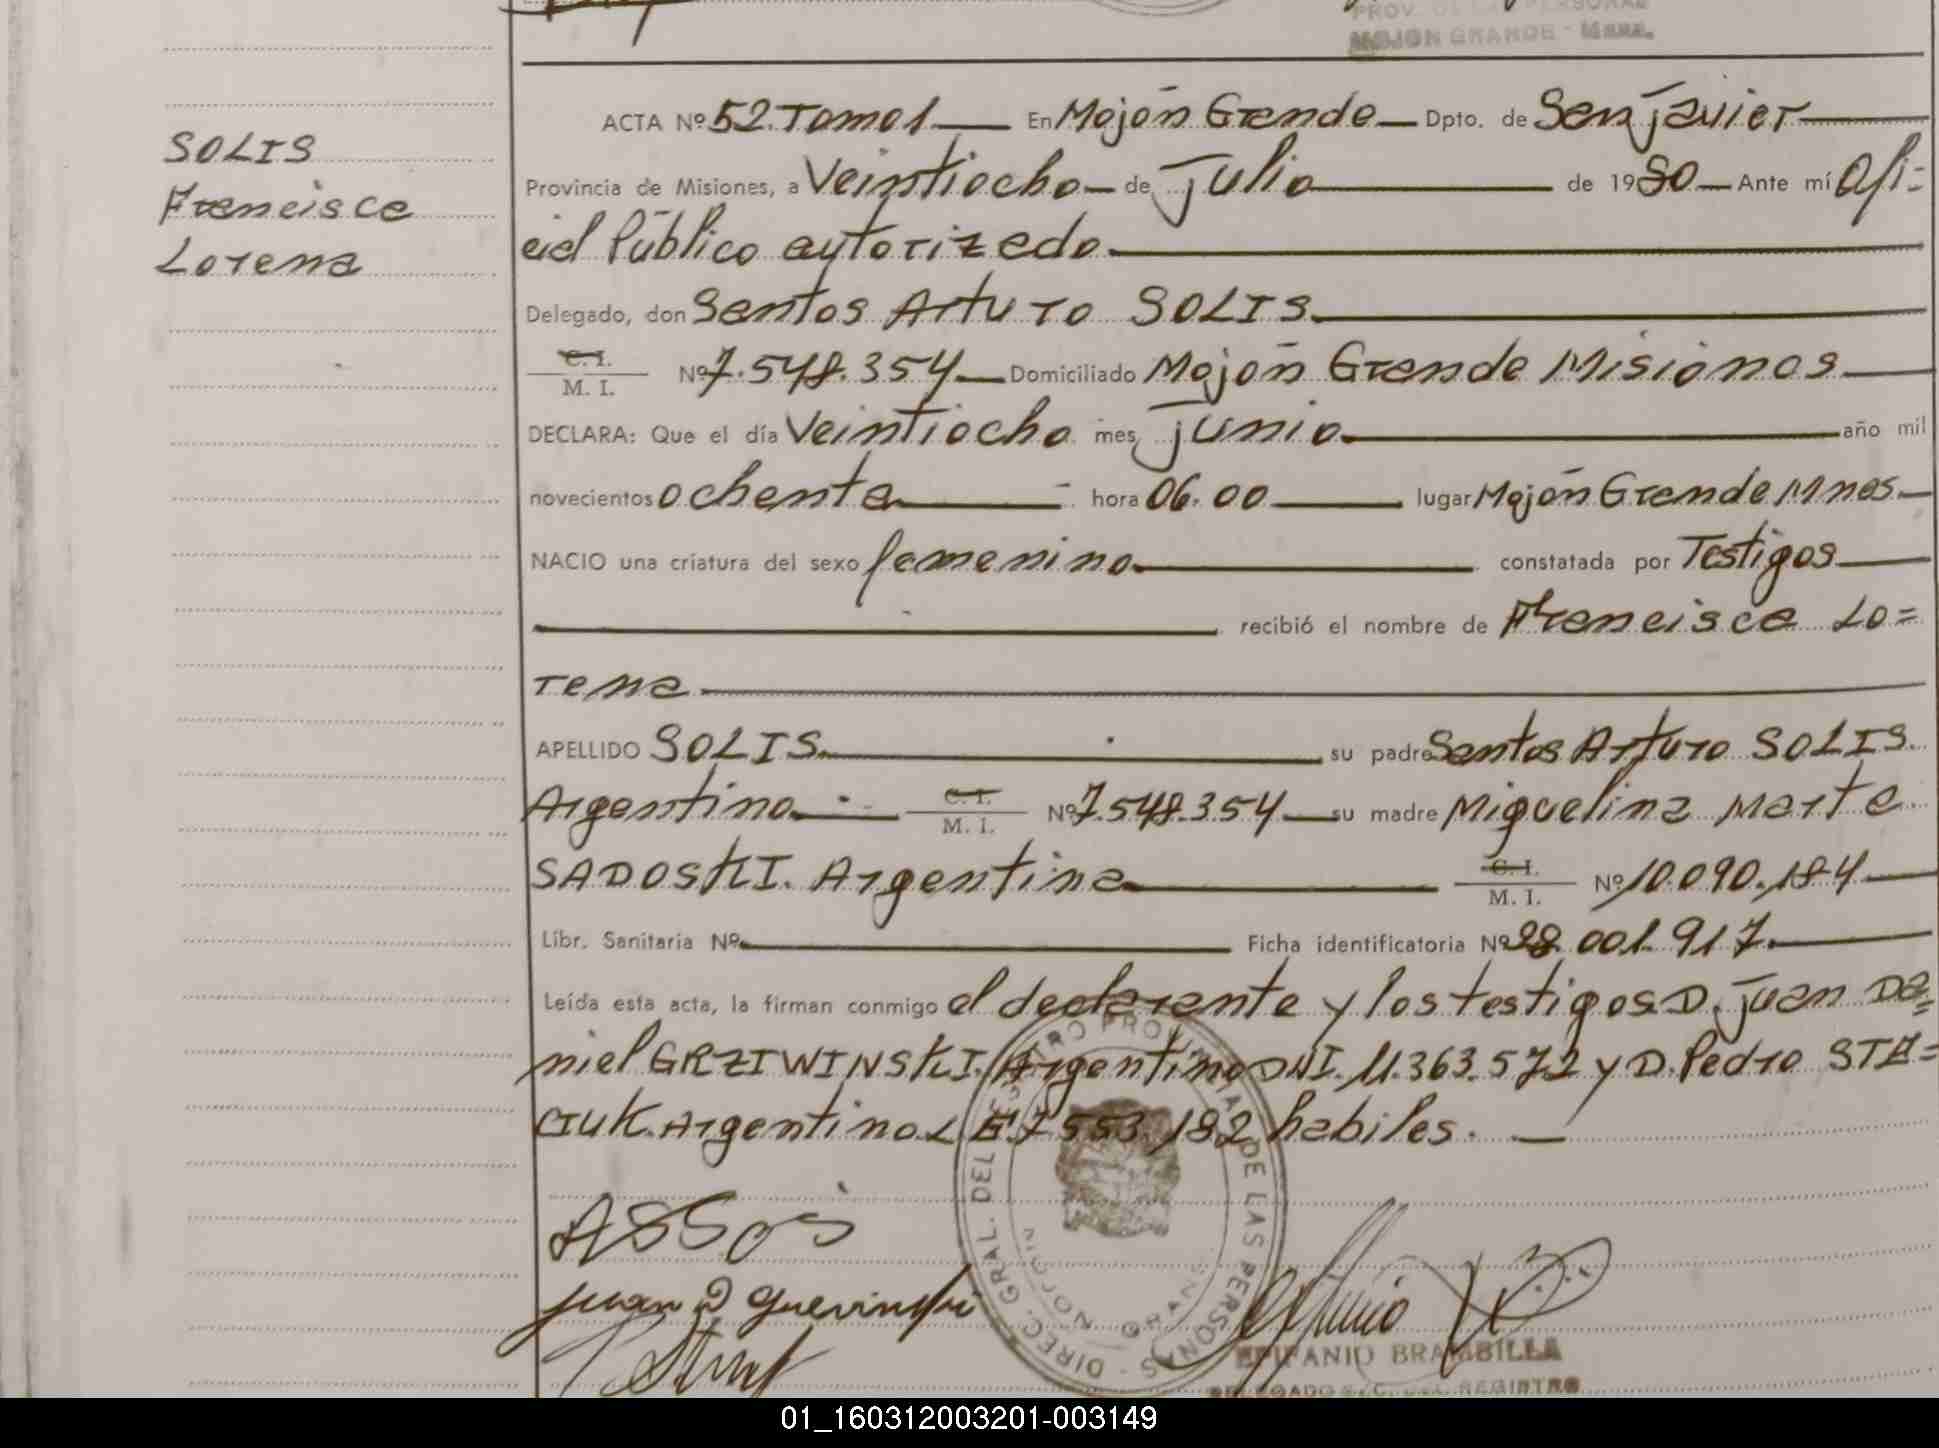 PROV. DE LAS PERSONAS
MOJON GRANDE - Mnes.
SOLIS
Francisca
Lorena
ACTA Nº 52. Tomo 1 En Mojón Grande Dpto. de San Javier
Provincia de Misiones, a Veintiocho de Julio de 1980 Ante mí Ofi=
cial Público autorizado
Delegado, don Santos Arturo SOLIS
C. I.
M. I. Nº 7.548.354 Domiciliado Mojón Grande Misiones
DECLARA: Que el día Veintiocho mes junio año mil
novecientos ochenta hora 06.00 lugar Mojón Grande Mnes.
NACIO una criatura del sexo femenino constatada por Testigos
recibió el nombre de Francisca Lo=
rena
APELLIDO SOLIS su padre Santos Arturo SOLIS.
Argentino C. I.
M. I. Nº 7.548.354 su madre Miguelina Marta
SADOSKI. Argentina C. I.
M. I. Nº 10.090.184
Libr. Sanitaria Nº Ficha identificatoria Nº 28.001.917
Leída esta acta, la firman conmigo el declarante y los testigos D. Juan Da=
niel GRZIWINSKI. Argentino DNI. 11.363.572 y D. Pedro
Argentino L.E. 7.553.182 habiles.
DIREC. GRAL. DEL REGISTRO PROVINCIAL DE LAS PERSONAS
MOJON GRANDE
EPIFANIO BRAMBILLA
DELEGADO REGISTRO
01_160312003201-003149